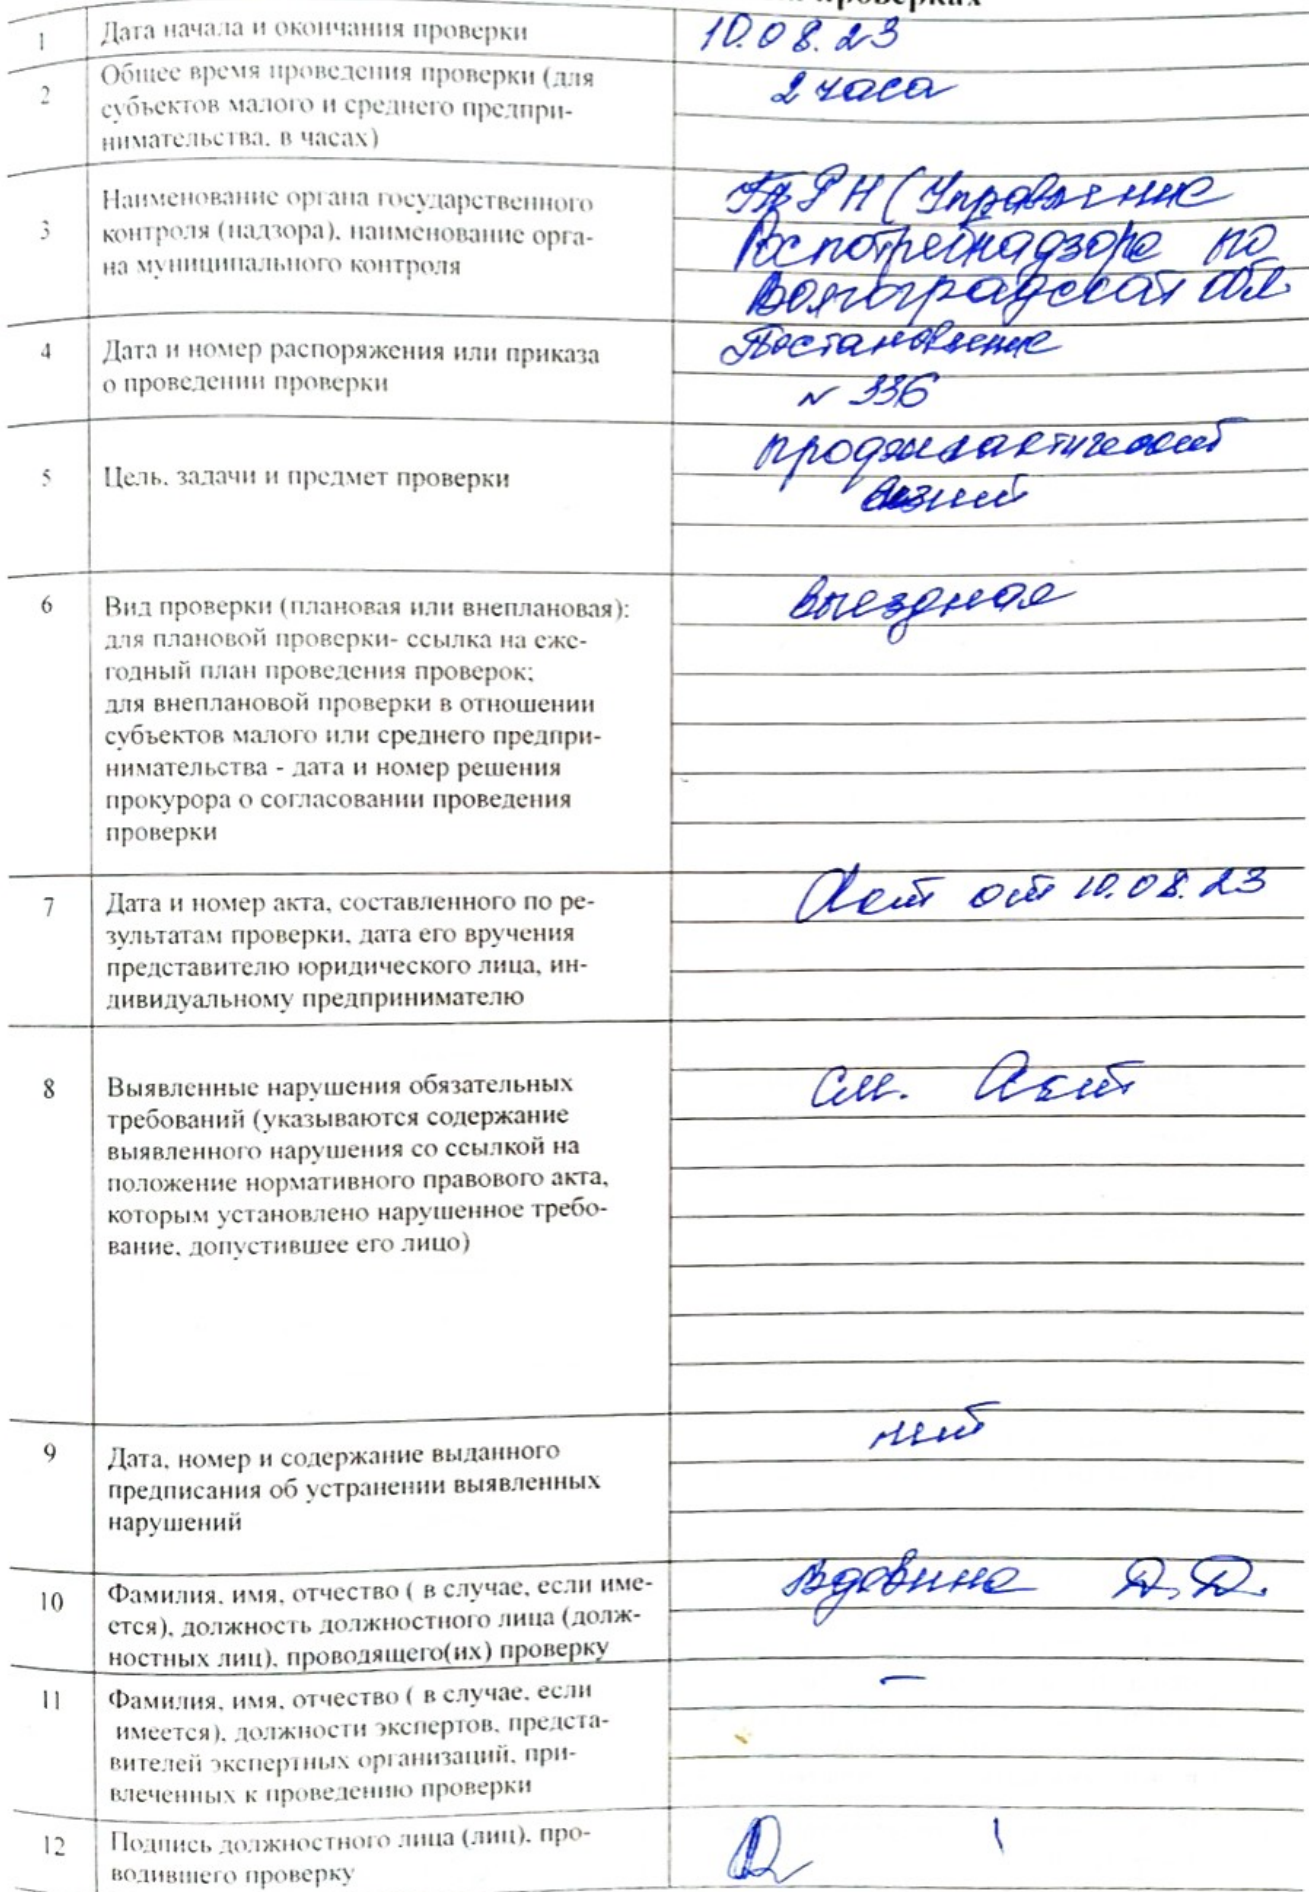 проверках
1 Дата начала и окончания проверки 10.08.23
2 Общее время проведения проверки (для 2 часа
субъектов малого и среднего предпри-
нимательства, в часах)
3 Наименование органа государственного
контроля (надзора), наименование орга-
на муниципального контроля
(Управление
Роспотребнадзора по
Волгоградской обл.
4 Дата и номер распоряжения или приказа
о проведении проверки
Постановление
№ 336
5 Цель, задачи и предмет проверки
профилактический
визит
6 Вид проверки (плановая или внеплановая): выездная
для плановой проверки- ссылка на еже-
годный план проведения проверок;
для внеплановой проверки в отношении
субъектов малого или среднего предпри-
нимательства - дата и номер решения
прокурора о согласовании проведения
проверки
7 Дата и номер акта, составленного по ре- Акт от 10.08.23
зультатам проверки, дата его вручения
представителю юридического лица, ин-
дивидуальному предпринимателю
8 Выявленные нарушения обязательных см. Акт
требований (указываются содержание
выявленного нарушения со ссылкой на
положение нормативного правового акта,
которым установлено нарушенное требо-
вание, допустившее его лицо)
9 Дата, номер и содержание выданного нет
предписания об устранении выявленных
нарушений
10 Фамилия, имя, отчество ( в случае, если име- Вдовина Д.Д.
ется), должность должностного лица (долж-
ностных лиц), проводящего(их) проверку
11 Фамилия, имя, отчество ( в случае, если –
имеется), должности экспертов, предста-
вителей экспертных организаций, при-
влеченных к проведению проверки
12 Подпись должностного лица (лиц), про-
водившего проверку